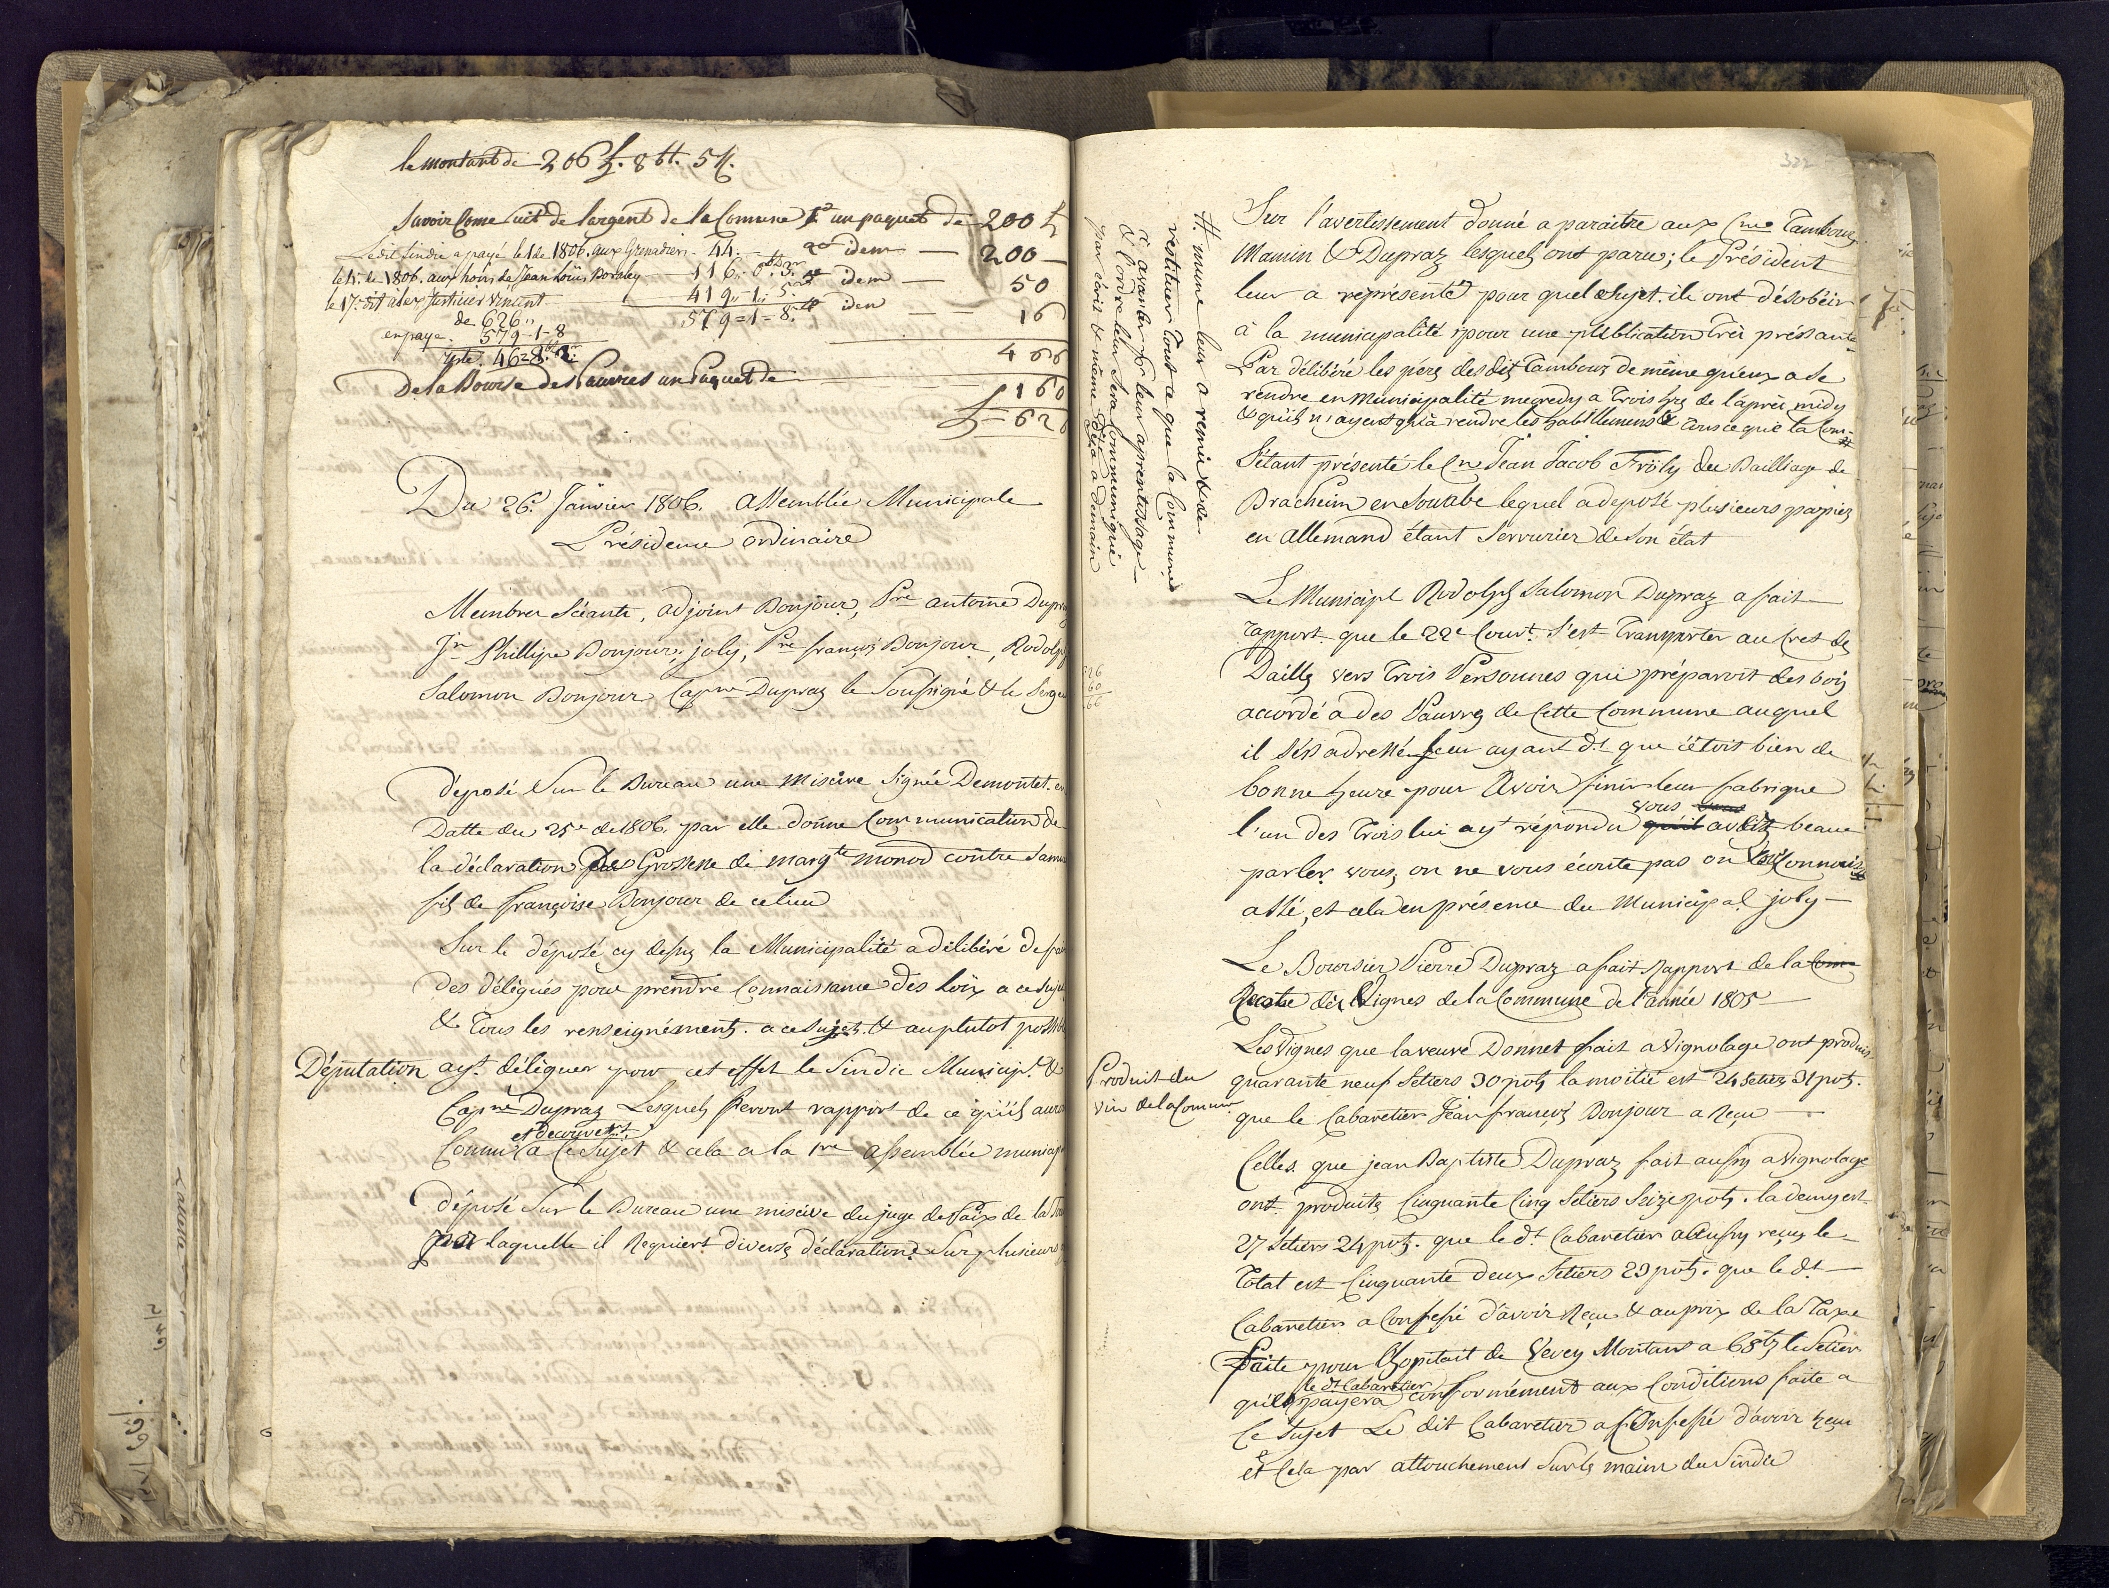 le montant de 206 £. 8 bt. 5 r.
Savoir Come suit de largent de la Comune 1° un paquet de 200 £
Ledit sindic a payé le 1 de 1806. aux Grenadiers - 44. - 2° idem — 200 —
le 15. de 1806. aux hoirs de Jean Louis Bornley 116. 0. 3. 3° idem — 50
le 17. dit à lex justicier Vincent 419 „ 1 „ 5. idem — 16
de 626 „ 579 = 1 = 8.
en paye. 579 - 1 - 8
reste. 46 = 8. 2. 466
De la Bourse des Pauvres un Paquet de 160
£ = 626
Du 26e. Janvier 1806. Assemblée Municipale
Présidence ordinaire
Membres Séants, adjoint Bonjour, Pre antoine Dupraz
Jn Phillipe Bonjour, joly, Pre françois Bonjour, Rodolph
Salomon Bonjour Capne Dupraz le Soussigné & le Serge
déposé Sur le Bureau une miscive Signée Demontet. en
Datte du 25e de 1806. par elle donne Communication de
la déclaration de Grossesse de margte monod contre Samu
fils de françoise Bonjour de ce lieu
Sur le déposé cy dessus la Municipalité a délibéré de fai
des délégués pour prendre Connaissance des Loix a ce sujet
& Tous les renseignéments. a ce sujet. & au plutot possible
Députation ayt. déléguer pour cet effet le Sindic Municipt. &
Capne Dupraz Lesquels feront rapport de ce qu'ils auro
et decouvert.
Connu a Ce Sujet & cela a la 1re assemblée municip
déposé Sur le Bureau une miscive du juge de Paix de la
par laquelle il Requiert diverses déclarations Sur plusieurs
322
Sur l'avertissement donné a paraître aux Cns Tambours
Mamin & Dupraz lesquels ont paru; le Président
leur a représenté pour quel Sujet. ils ont désobéir
à la municipalité pour une publication Très préssante
Par délibéré les pères desdits Tambours de même qu'eux a Se
rendre en Municipalité mecredy a Trois hrs de l'après midy
& qu'ils n'ayent qu'à rendre les habillemens & tous ce que la Com- #
# mune leur a remis & de
restituer Tout ce que la Commune
a avancer pr leur aprentissage —
& l'ordre leur Sera Communiqué
par écrit & même déja a demain
S'étant présenté le Cn Jean Jacob Fröly du Bailliage de
Bracheim en Souabe lequel a déposé plusieurs papiers
en Allemand étant Serrurier de Son état
Le Municipl Rodolph Salomon Dupraz a fait
rapport. que le 22e Court. s'est Transporter au Cret des
Dailles vers Trois Personnes qui préparoit des bois
accordé a des Pauvres de Cette Commune auquel
il s'est adressé leur ayant dt que c'étoit bien de
bonne heure pour Avoir finir leur fabrique
vous
l'un des Trois lui ayt répondu avez beau
parler vous, on ne vous écoute pas on vous Connois
assé, et cela en présence du Municipal joly —
Le Boursier Pierre Dupraz a fait Rapport de la
Recolte des Vignes de la Commune de l'année 1805 —
Les Vignes que la veuve Donnet fait a Vignolage ont produis
Produit du
vin de la Comune
quarante neuf Setiers 30 pots la moitié est 24 Setiers 31 pots.
que le Cabaretier Jean françois Bonjour a Reçu —
Celles que jean Baptiste Dupraz fait aussy a Vignolage
ont produits Cinquante Cinq Setiers Seize pots. la demy est
27 Setiers 24 pots. que le dt. Cabaretier a aussy reçus le
Total est Cinquante deux Setiers 23 pots. que le dt. —
Cabaretier a Confessé d'avoir Reçu & au prix de la Taxe
Faite pour l'hopitait de Vevey Montant a 68 bts le Setier
le dt Cabaretier
qu'il payera conformément aux Conditions faite a
Ce Sujet Le dit Cabaretier a Confessé d'avoir reçu
et Cela par attouchement Sur les mains du Sindic